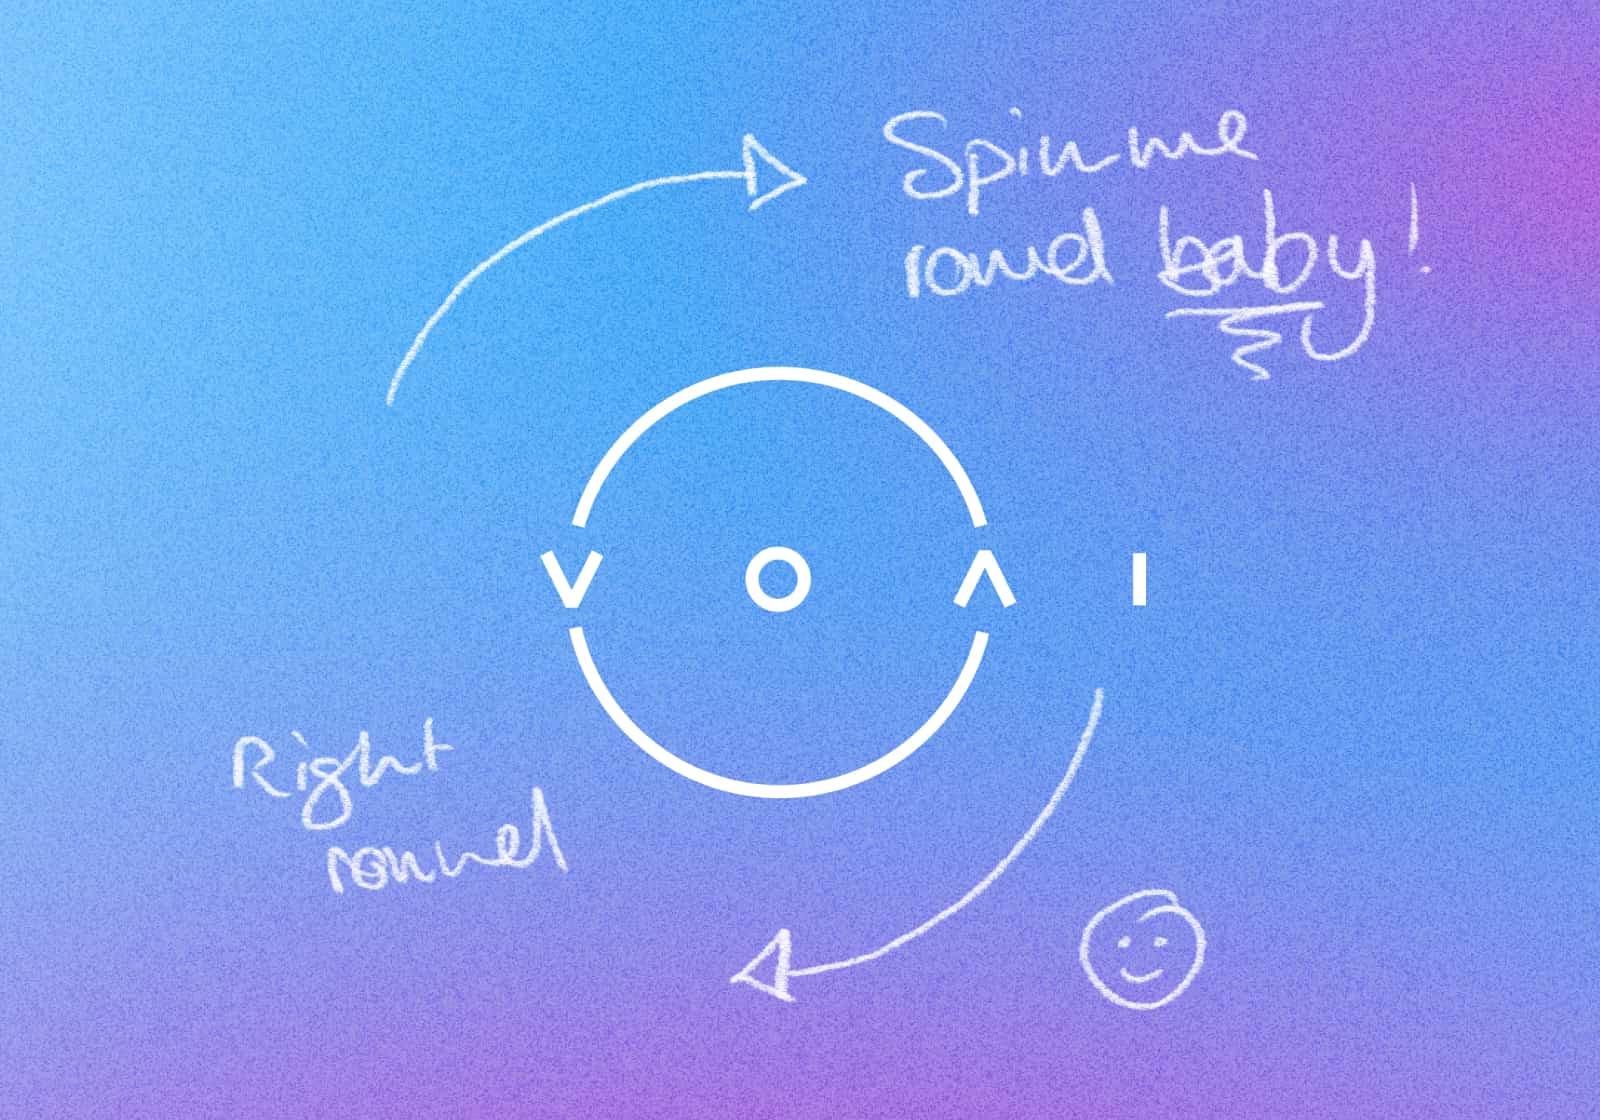 Spin me
round baby!
VOΛI
Right
round